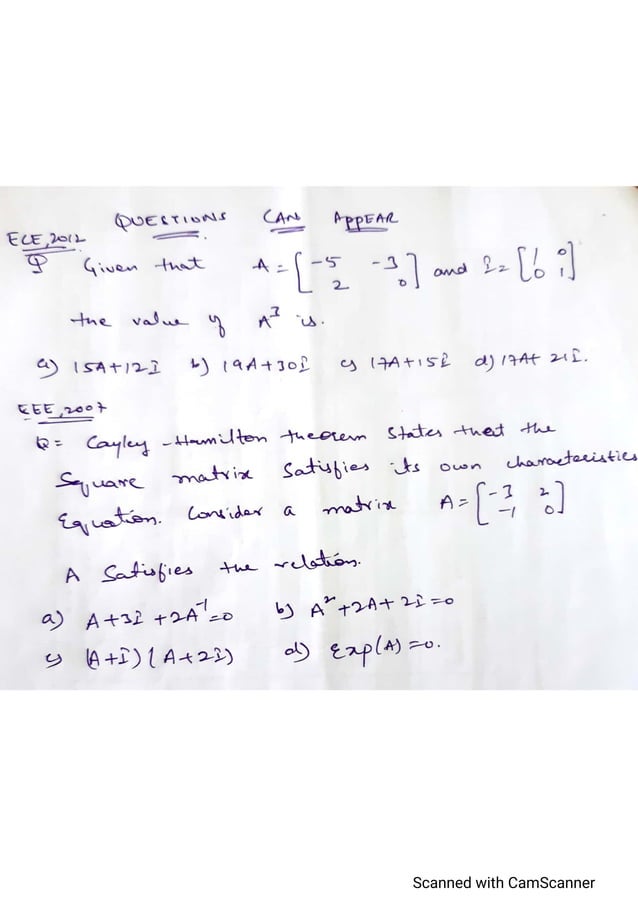 QUESTIONS CAN APPEAR
ECE, 2012
Q Given that A = [-5 -3 2 0] and I = [1 0 0 1]
the value of A³ is.
a) 15A+12I b) 19A+30I c) 17A+15I d) 17A+ 21I.
EEE, 2007
Q= Cayley -Hamilton theorem States that the
Square matrix Satisfies its own characteristics
Equation. Consider a matrix A = [-3 2 -1 0]
A Satisfies the relation.
a) A+3I +2A⁻¹=0 b) A²+2A+2I=0
c) (A+I)(A+2I) d) Exp(A)=0.
Scanned with CamScanner